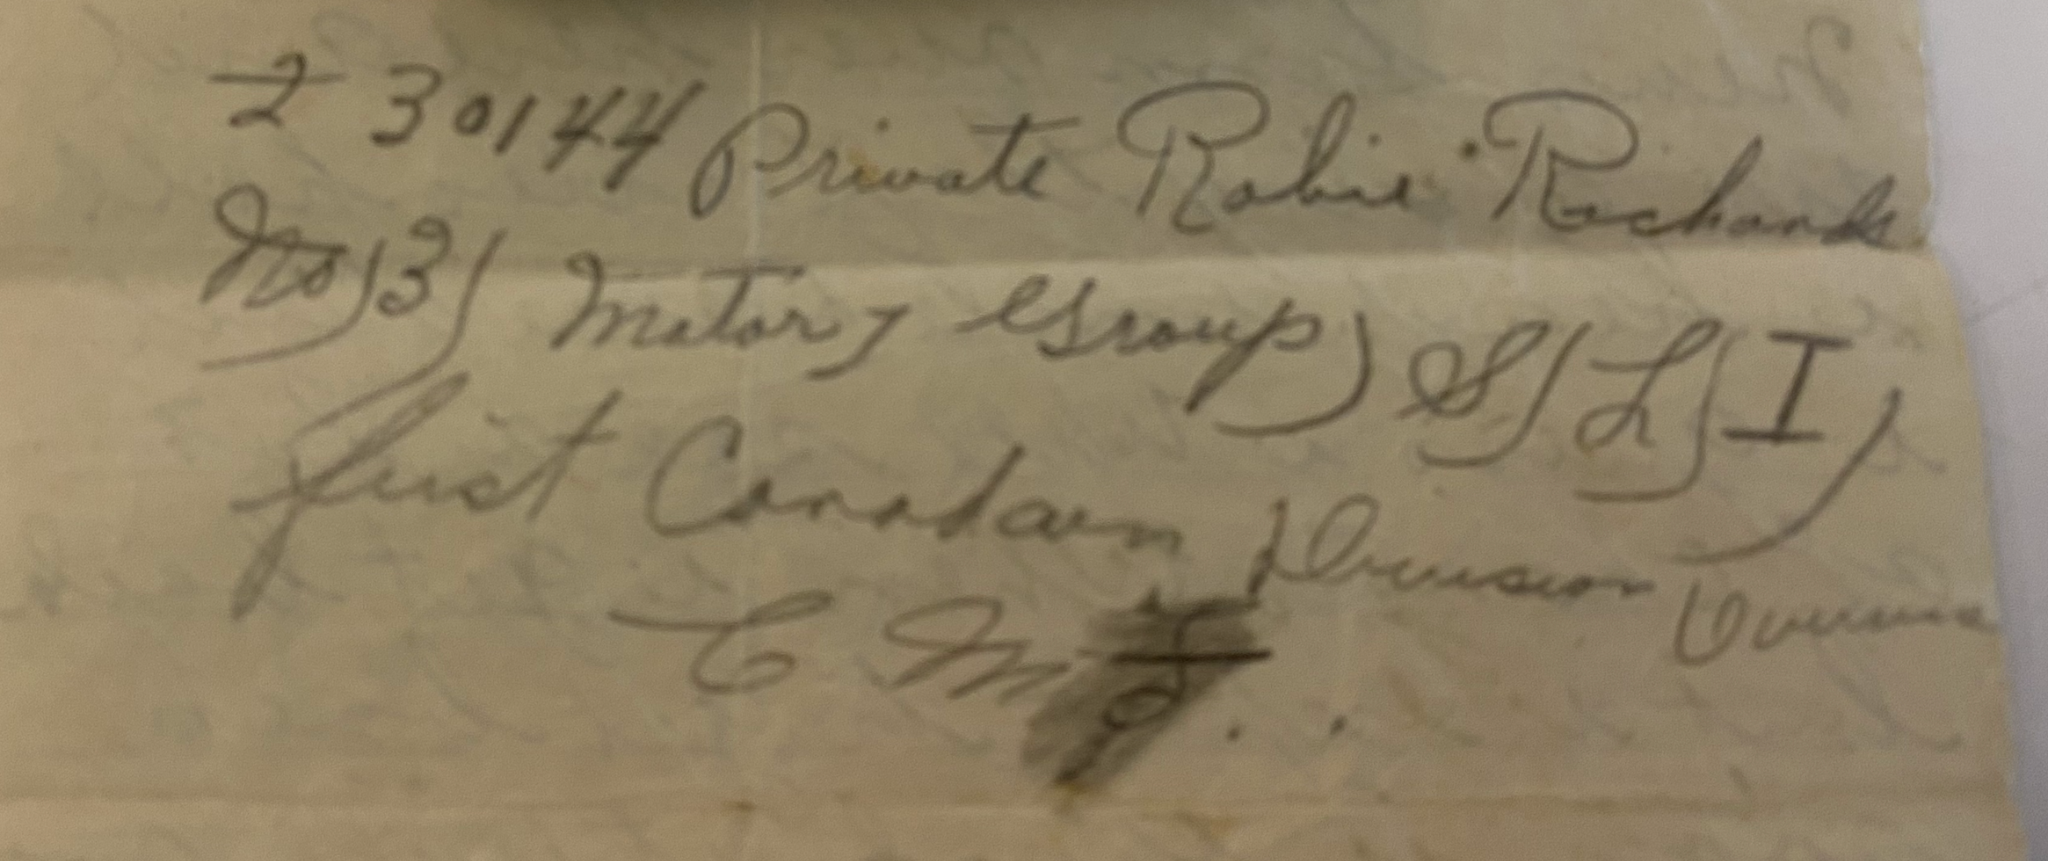 230144 Private Robie Richards
No, 3, Motor, Group, S, L, I,
first Canadian Division Overseas
C M F . .